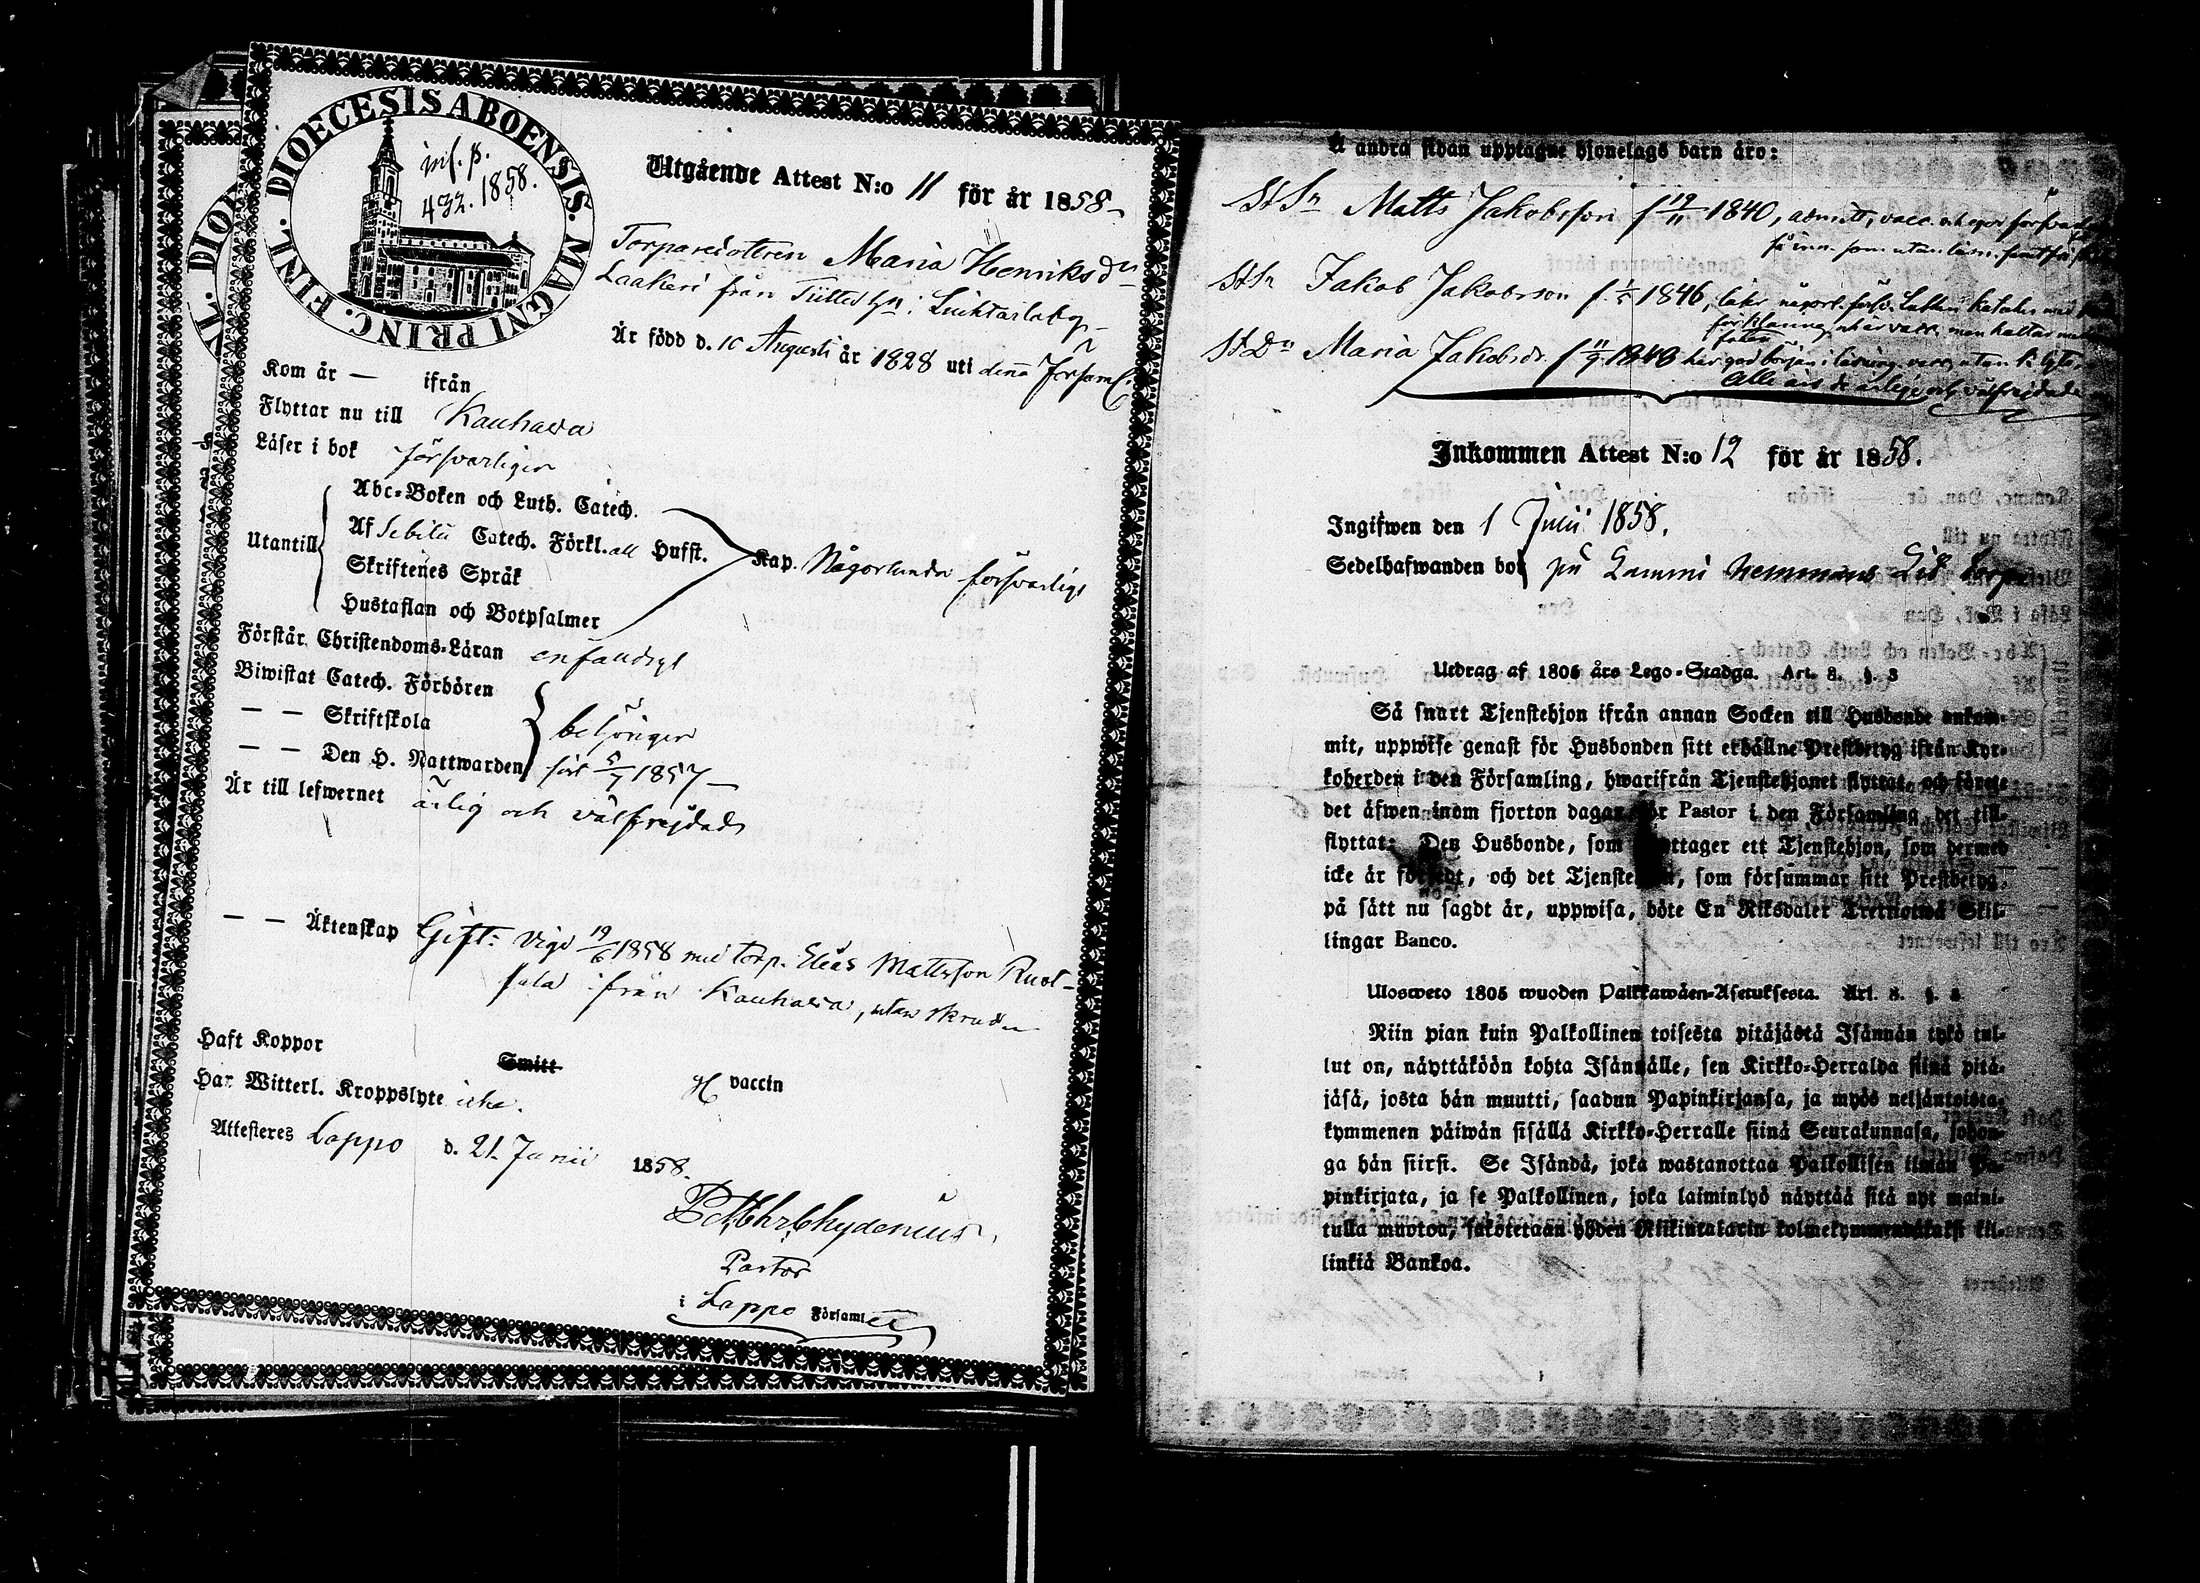 DIOECESIS ABOENSIS. MAGNI PRINC. FINL.
inf. p.
432. 1858.
Utgående Attest N:o 11 för år 1858
Torparedottren Maria Henriksdr
Laakeri från
Är född d. 10 Augusti år 1828 uti denna Församl.
Kom år — ifrån
Flyttar nu till Kauhava
Läser i bok försvarligen
Utantill
Abc-Boken och Luth. Catech.
Af Sebilii Catech. Förkl. all Hufst.
Skriftenes Språk
Hustaflan och Botpsalmer
Kap. Någorlunda försvarligt
Förstår Christendoms-Läran enfaldigt
Biwistat Catech. Förhören
— — Skriftskola
— — Den H. Nattwarden
behörigen
sist 5/7 1857
Är till lefwernet ärlig och välfrejdad
— — Äktenskap Gift: vigd 19/6 1858 med torp. Elias Mattsson Ruot-
sala ifrån Kauhava, utan
Haft Koppor Smitt vaccin
Har Witterl. Kroppslyte icke.
Attesteres Lappo d. 21 Junii 1858.
Chydenius
Pastor
i Lappo Församl
å andra sidan upptagne hjonelags barn äro:
StSn Matts Jakobsson f 19/11 1840, admitt, vacc.
StSn Jakob Jakobsson f. 1/5 1846,
förklaring och är vacc. men haltar
StDr Maria Jakobsdr. f 11/9 1848 har god början i läsning, vacc, utan k. lyte.
Alla äro de ärlige och välfrejdade
Inkommen Attest N:o 12 för år 1858.
Ingifwen den 1 Julii 1858.
Sedelhafwanden bor på Lammi hemmans Torp
Utdrag af 1805 års Lego-Stadga. Art. 8. §. 3
Så snart Tjenstehjon ifrån annan Socken till Husbonde ankom-
mit, uppwise genast för Husbonden sitt erhållne Prestbetyg ifrån Kyr-
koherden i den Församling, hwarifrån Tjenstehjonet flyttat, och förete
det äfwen inom fjorton dagar för Pastor i den Församling det till-
flyttat: Den Husbonde, som emottager ett Tjenstehjon, som dermed
icke är försedt, och det Tjenstehjon, som försummar sitt Prestbetyg,
på sätt nu sagdt är, uppwisa, böte En Riksdaler Trettiotwå Skil-
lingar Banco.
Ulosweto 1805 wuoden Palkkawäen-Asetuksesta. Art. 8. §. 3
Niin pian kuin Palkollinen toisesta pitäjästä Isännän tykö tul-
lut on, näyttäköön kohta Isännälle, sen Kirkko-Herralda siinä pitä-
jäsä, josta hän muutti, saadun Papinkirjansa, ja myös neljäntoista-
kymmenen päiwän sisällä Kirkko-Herralle siinä Seurakunnasa, johon-
ga hän siirsi. Se Isändä, joka wastanottaa Palkollisen ilman Pa-
pinkirjata, ja se Palkollinen, joka laiminlyö näyttää sitä nyt maini-
tulla muotoa, sakotetaan yhden Riikintalarin kolmekymmendäkaksi kil-
linkiä Bankoa.